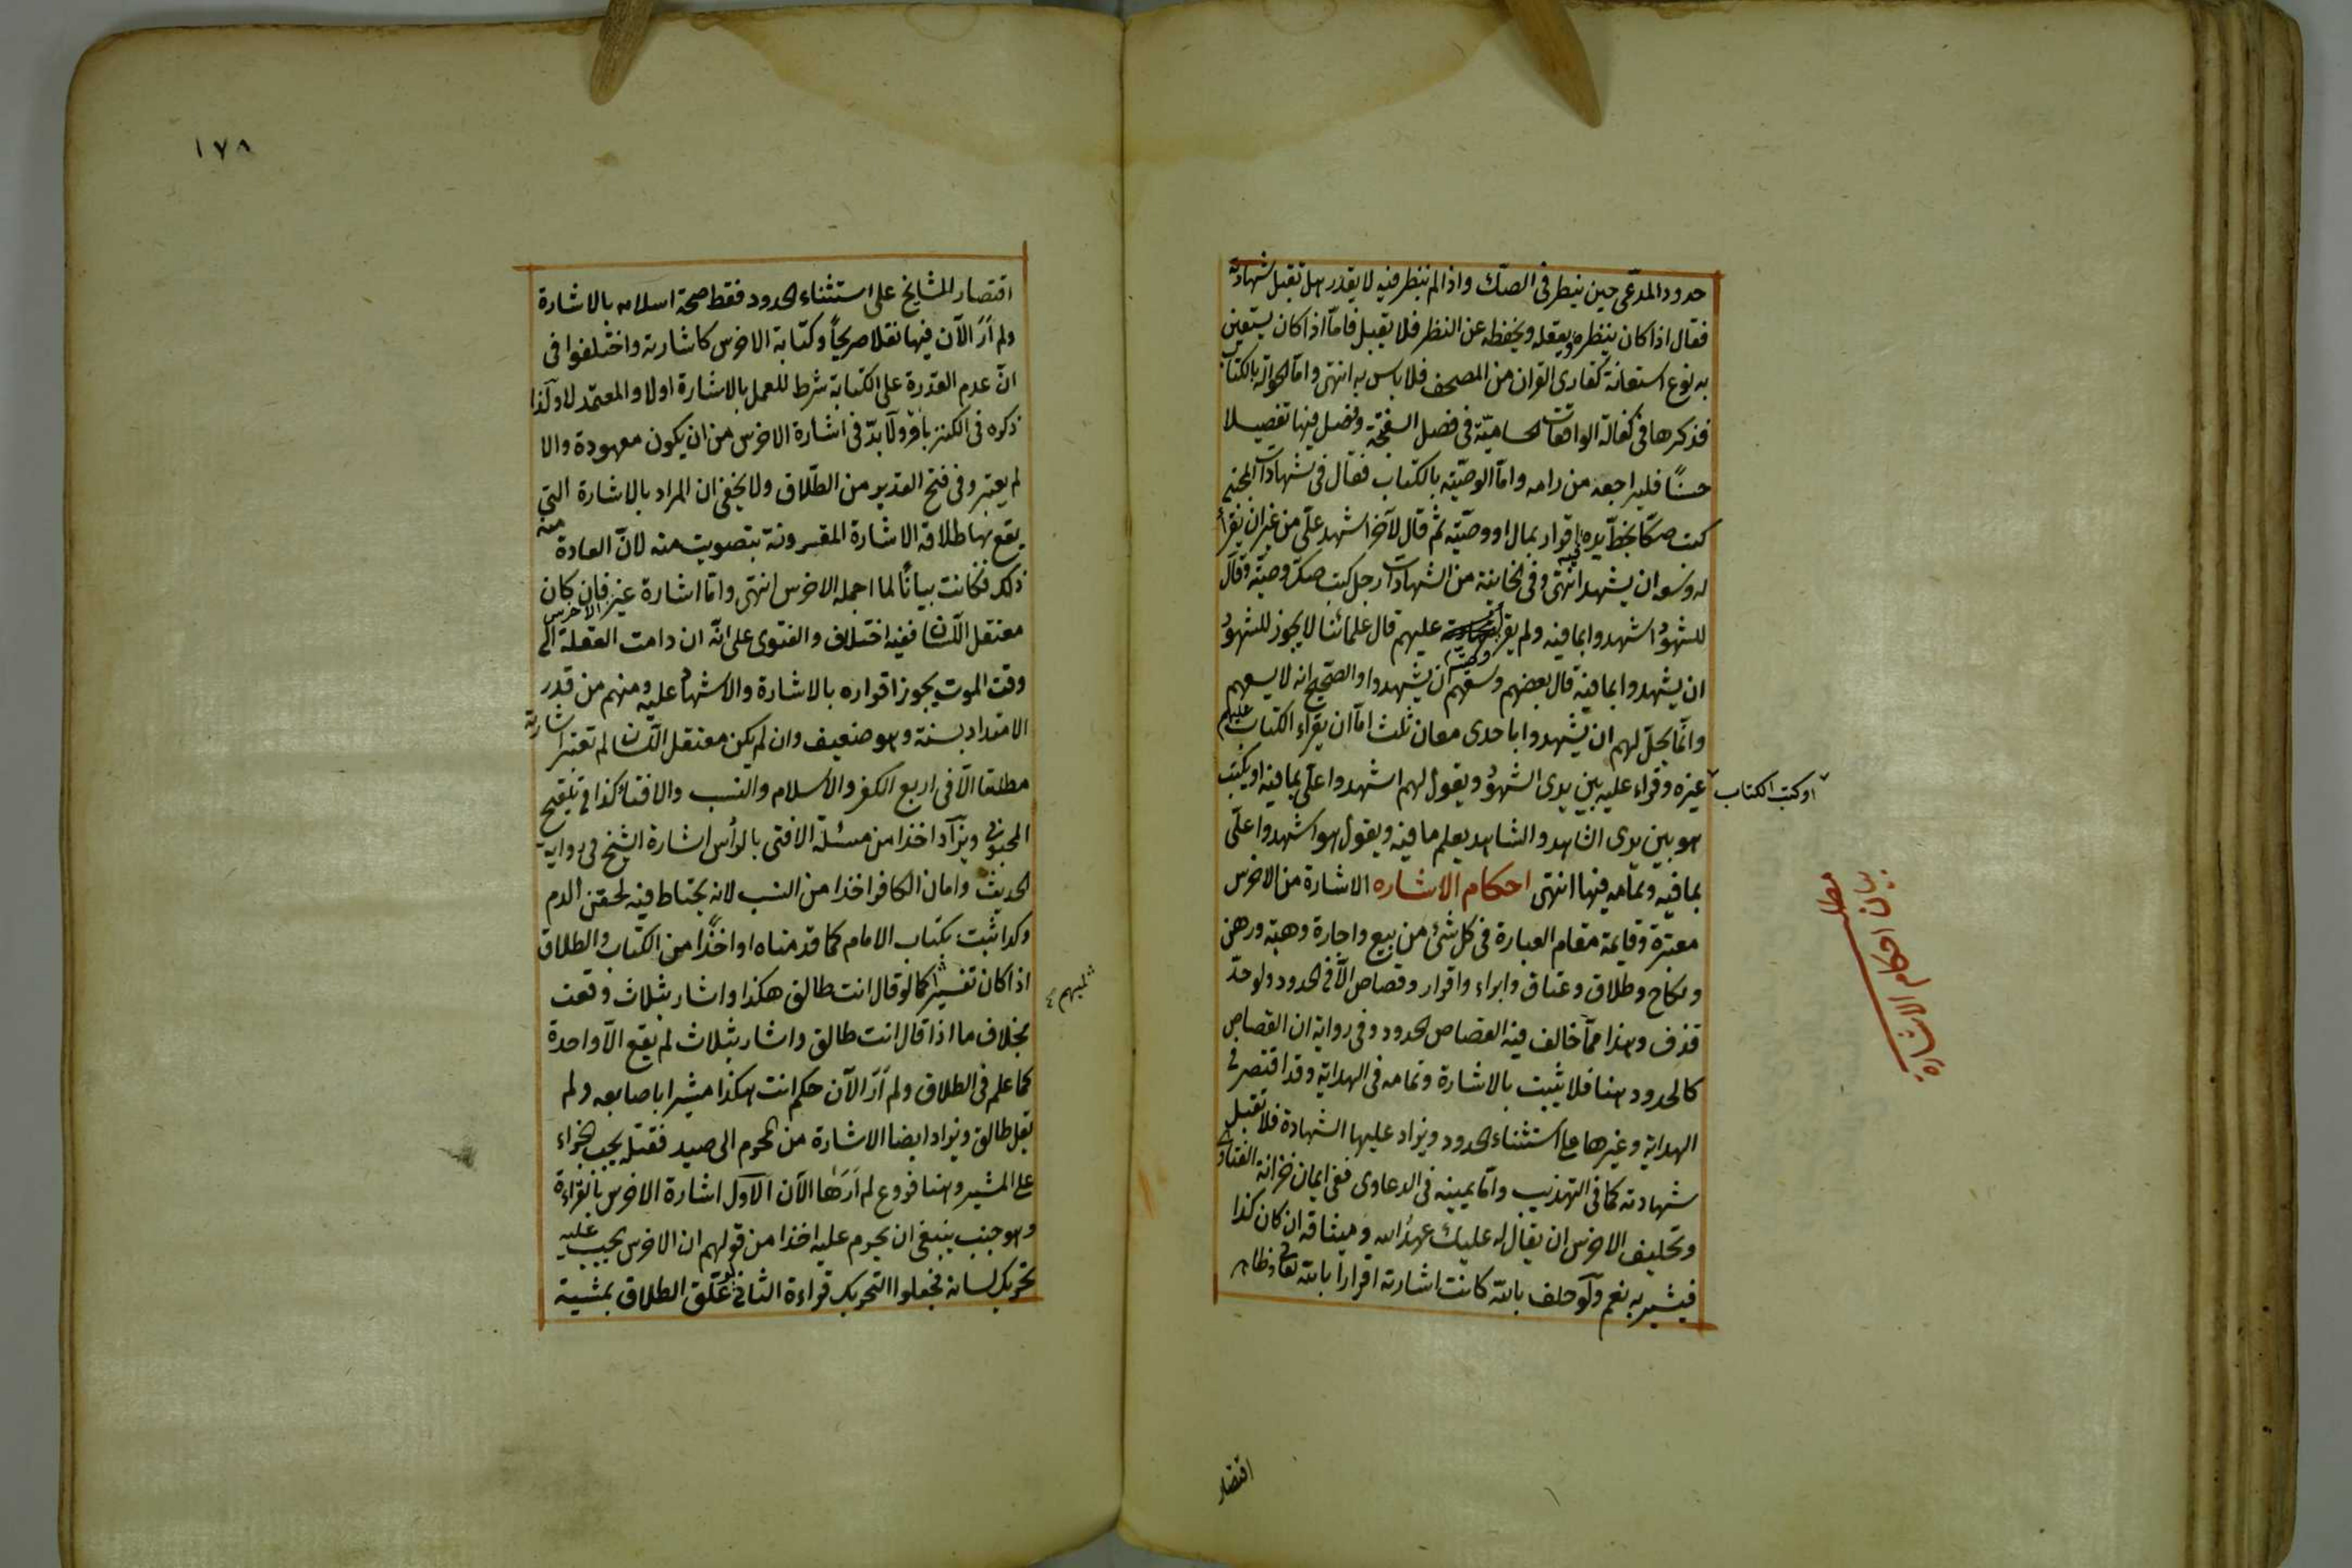 حدود المدّعى حين ينظر فى الصّك واذا لم ينظر فيه لا يقدر هل تقبل شهادته
فقال اذا كان ينظره ويعقله ويحفظه عن النظر فلا يقبل فامّا اذا كان يستعين
به نوع استعانة كقارى القران من المصحف فلا باس به انتهى وامّا الحوالة بالكتاب
فذكرها فى كفالة الواقعات الحساميّة فى فصل السفتجة وفصل فيها تفصيلا
حسنًا فليراجعه من رامه وامّا الوصيّة بالكتاب فقال فى شهادات المجتبى
كتب صكّا بخطّ يده اقرار بمال او وصيّة ثم قال لآخر اشهد علىّ من غير ان يقرأ
له وسعه ان يشهد انتهى وفى الخانية من الشهادات رجل كتب صك وصية وقال
للشهود اشهدوا بما فيه ولم يقرأ وصيته عليهم قال علمائنا لا يجوز للشهود
ان يشهدوا بما فيه قال بعضهم وسعهم ان يشهدوا والصّحيح انه لا يسعهم
وانّما يحلّ لهم ان يشهدوا باحدى معان ثلث امّا ان يقراء الكتاب عليهم
او كتب الكتاب
غيره وقراء عليه بين يدى الشهود ويقول لهم اشهدوا علىّ بما فيه او يكتب
هو بين يدى الشاهد والشاهد يعلم ما فيه ويقول هو اشهدوا علىّ
بما فيه وتمامه فيها انتهى احكام الاشاره الاشارة من الاخرس
مطلب
بيان احكام الاشارة
معتبرة وقايمة مقام العبارة فى كل شئ من بيع واجارة وهبة ورهن
ونكاح وطلاق وعتاق وابراء واقرار وقصاص الّا فى الحدود ولو حدّ
قذف وهذا ممّا خالف فيه القصاص الحدود وفى رواية ان القصاص
كالحدود هنا فلا يثبت بالاشارة وتمامه فى الهداية وقد اقتصر فى
الهداية وغيرها على استثناء الحدود ويزاد عليها الشهادة فلا تقبل
شهادته كما فى التهذيب وامّا يمينه فى الدعاوى ففى ايمان خزانة الفتاوى
وتحليف الاخرس ان يقال له عليك عهد الله وميثاقه ان كان كذا
فيشير به نعم ولو حلف بالله كانت اشارته اقرارا بالله تعالى وظاهر
اقتصار
١٧٨
اقتصار المشايخ على استثناء الحدود فقط صحة اسلامه بالاشارة
ولم أرَ الآن فيها نقلا صريحًا وكتابة الاخرس كاشارته واختلفوا فى
انّ عدم القدرة على الكتابة شرط للعمل بالاشارة اولا والمعتمد لا ولذا
ذكره فى الكنز باو ولا بدّ فى اشارة الاخرس من ان يكون معهودة والا
لم يعتبر وفى فتح القدير من الطّلاق ولا يخفى ان المراد بالاشارة التى
يقع بها طلاقه الاشارة المقرونة بتصويت منه لانّ العادة منه
ذلك فكانت بيانًا لما اجمله الاخرس انتهى وامّا اشارة غير الاخرس فان كان
معتقل اللّسان ففيه اختلاف والفتوى على انّه ان دامت العقلة الى
وقت الموت يجوز اقراره بالاشارة والاشهاد عليه ومنهم من قدر
الامتداد بسنة وهو ضعيف وان لم يكن معتقل اللّسان لم تعتبر اشارته
مطلقا الّا فى اربع الكفر والاسلام والنسب والافتاء كذا فى تلقيح
المحبوبى ويزاد اخذا من مسئلة الافتى بالرأس اشارة الشيخ فى رواية
الحديث وامان الكافر اخذا من النسب لانه يحتاط فيه لحقن الدم
وكذا يثبت بكتاب الامام كما قدمناه او اخذًا من الكتاب والطلاق
اذا كان تفسيرا كما لو قال انت طالق هكذا واشار بثلاث وقعت
لمبهم
بخلاف ما اذا قال انت طالق واشار بثلاث لم يقع الّا واحدة
كما علم فى الطلاق ولم أرَ الآن حكم انت هكذا مشيرا باصابعه ولم
تقل طالق ويزاد ايضا الاشارة من المحرم الى صيد فقتله يجب الجزاء
على المشير وهنا فروع لم أرَها الآن الاول اشارة الاخرس بالقراءة
وهو جنب ينبغى ان يحرم عليه اخذا من قولهم ان الاخرس يجب عليه
تحريك لسانه فجعلوا التحريك قراءة الثانى لو علّق الطلاق بمشية